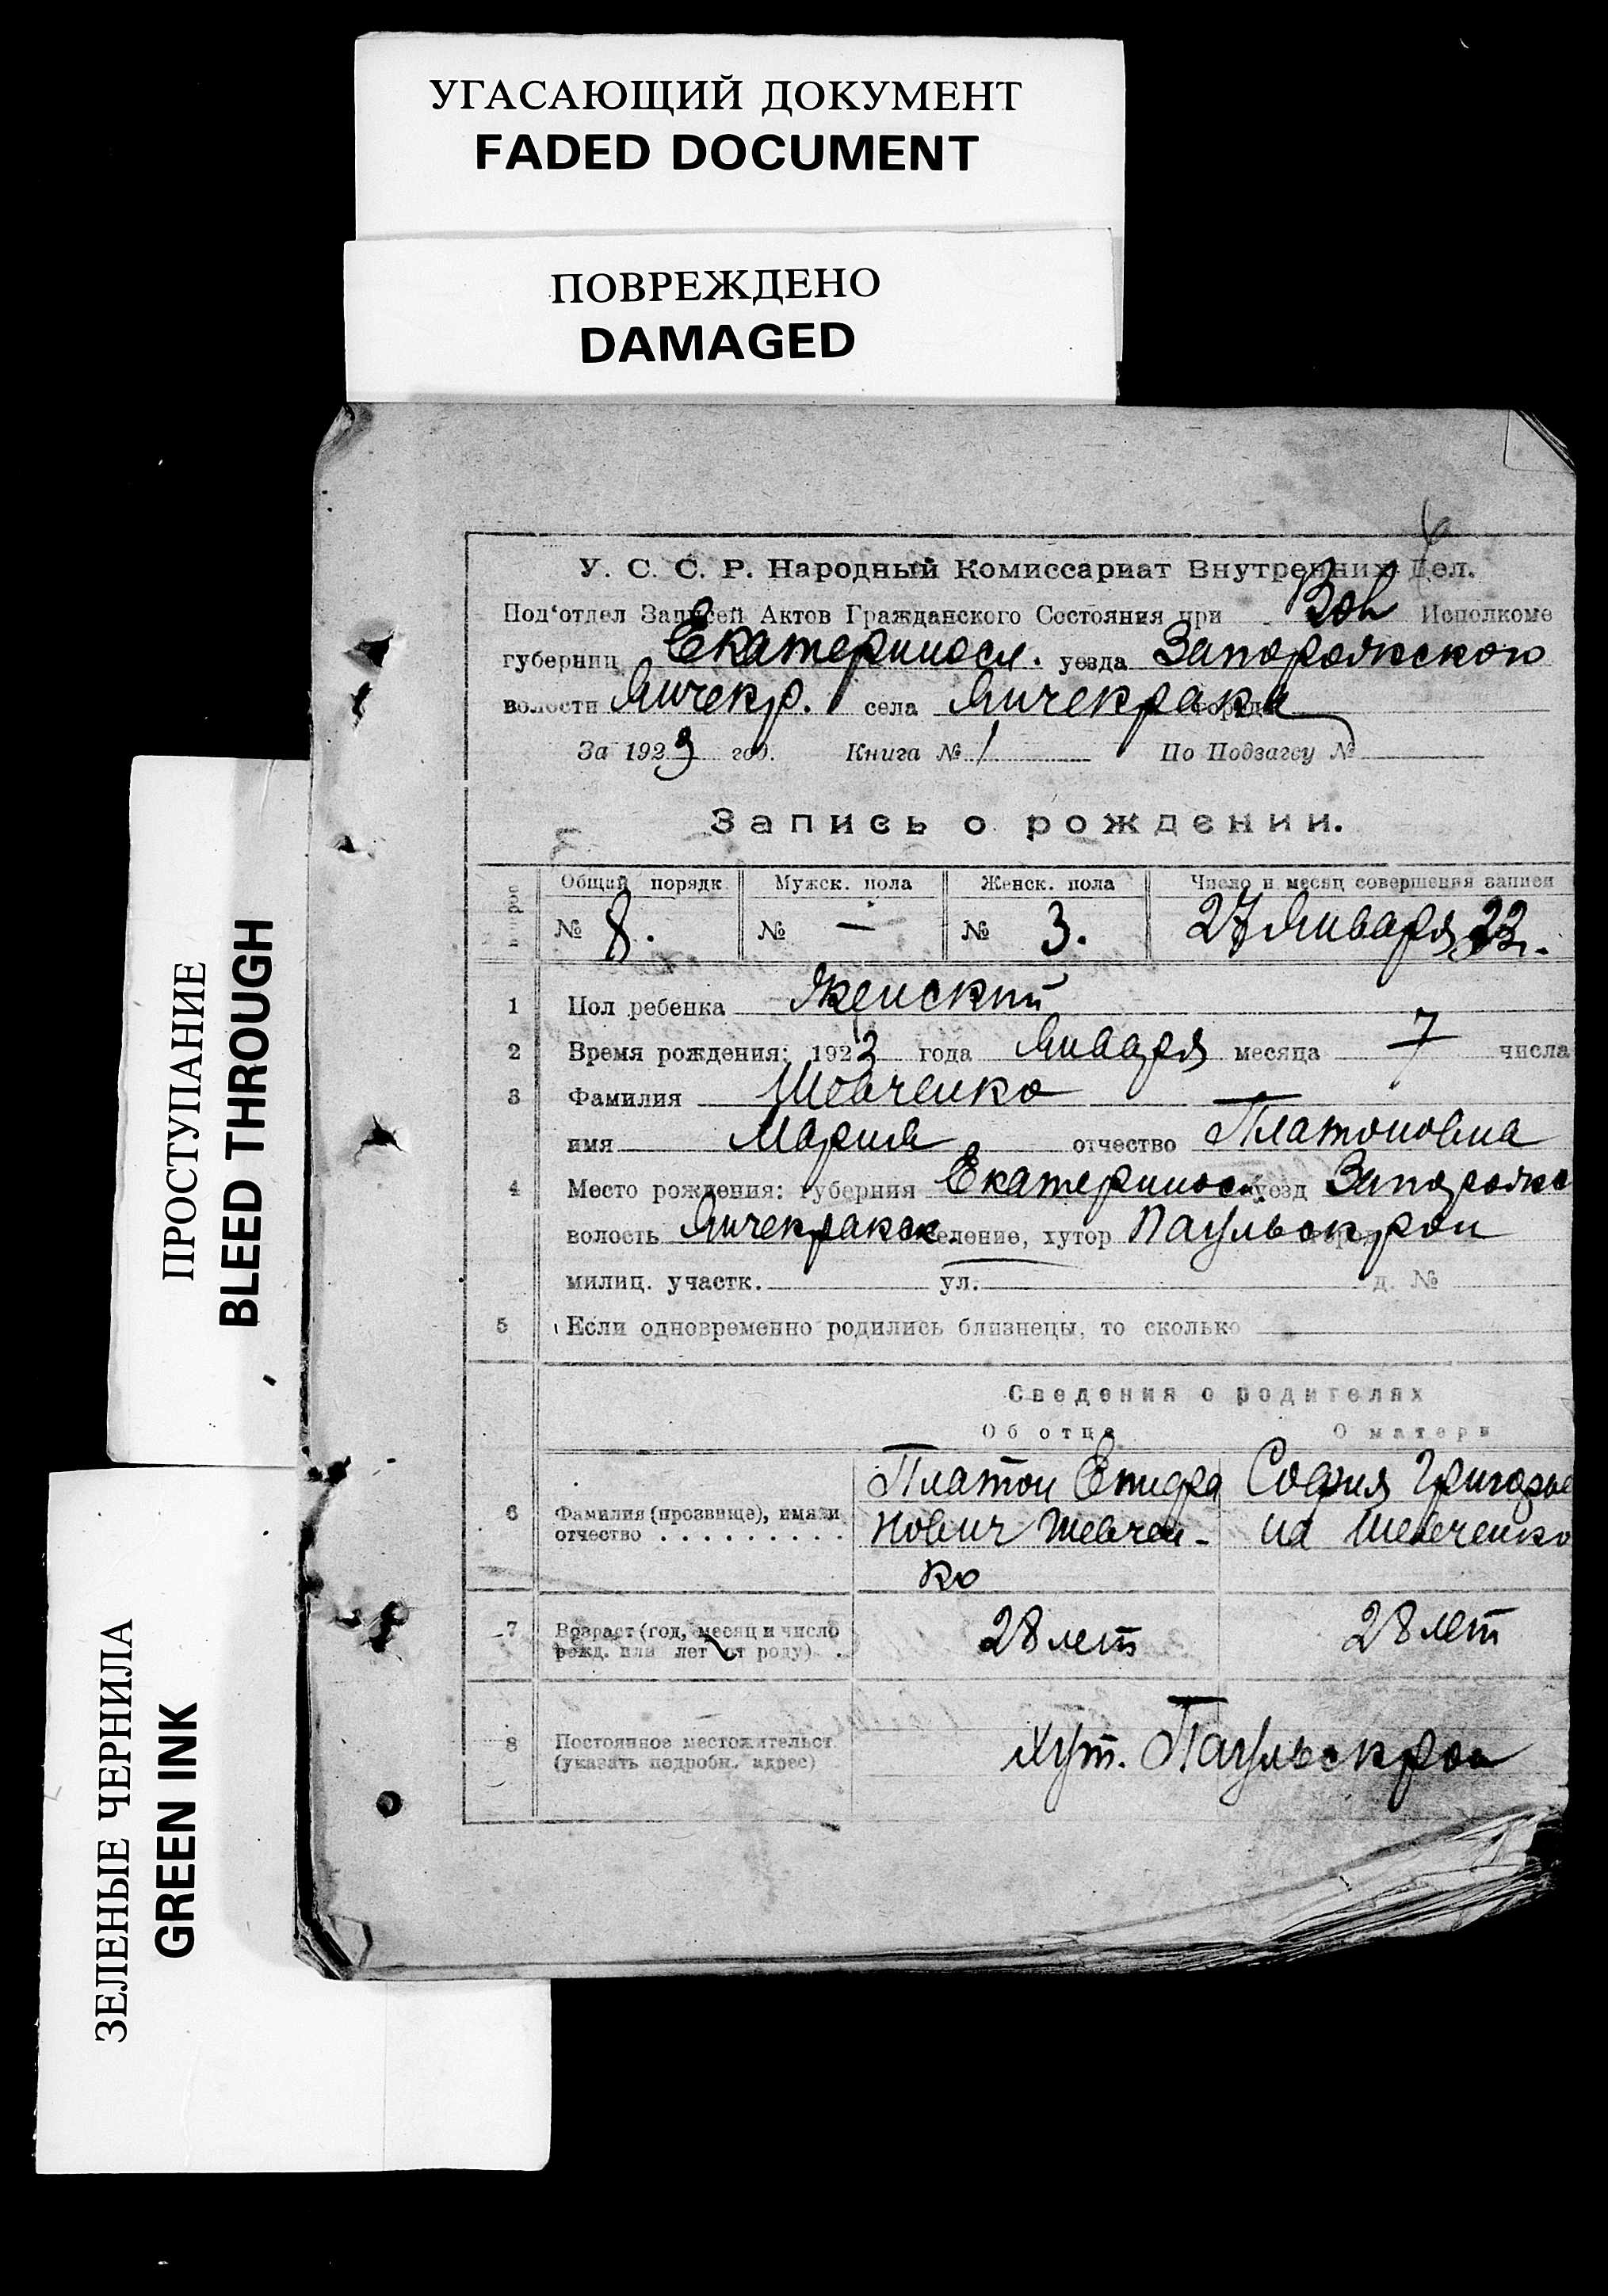 УГАСАЮЩИЙ ДОКУМЕНТ
FADED DOCUMENT
ПОВРЕЖДЕНО
DAMAGED
ПРОСТУПАНИЕ
BLEED THROUGH
ЗЕЛЕНЫЕ ЧЕРНИЛА
GREEN INK
У. С. С. Р. Народный Комиссариат Внутренних Дел.
Под'отдел Записей Актов Гражданского Состояния при Вол Исполкоме
губернии Екатериносл. уезда Запорожского
волости Янчекр. села Янчекрака
За 1923 год. Книга № 1 По Подзагсу №
Запись о рождении.
Общий порядк. Мужск. пола Женск. пола Число и месяц совершения записи
№ 8. № — № 3. 27 Января 23г.
1 Пол ребенка Женский
2 Время рождения: 1923 года Января месяца 7 числа
3 Фамилия Шевченко
имя Мария отчество Платоновна
4 Место рождения: губерния Екатериносл. уезд Запорожс
волость Янчекракск. селение, хутор Паульскрон
милиц. участк. ул. д. №
5 Если одновременно родились близнецы, то сколько
Сведения о родителях
Об отце О матери
6 Фамилия (прозвище), имя и отчество . . . . . . . . .
Платон
нович Шевчен-
ко
София Григорье
на Шевченко
7 Возраст (год, месяц и число
рожд. или лет от роду) .
28 лет 28 лет
8 Постоянное местожительст.
(указать подробн. адрес)
Хут. Паульскрон